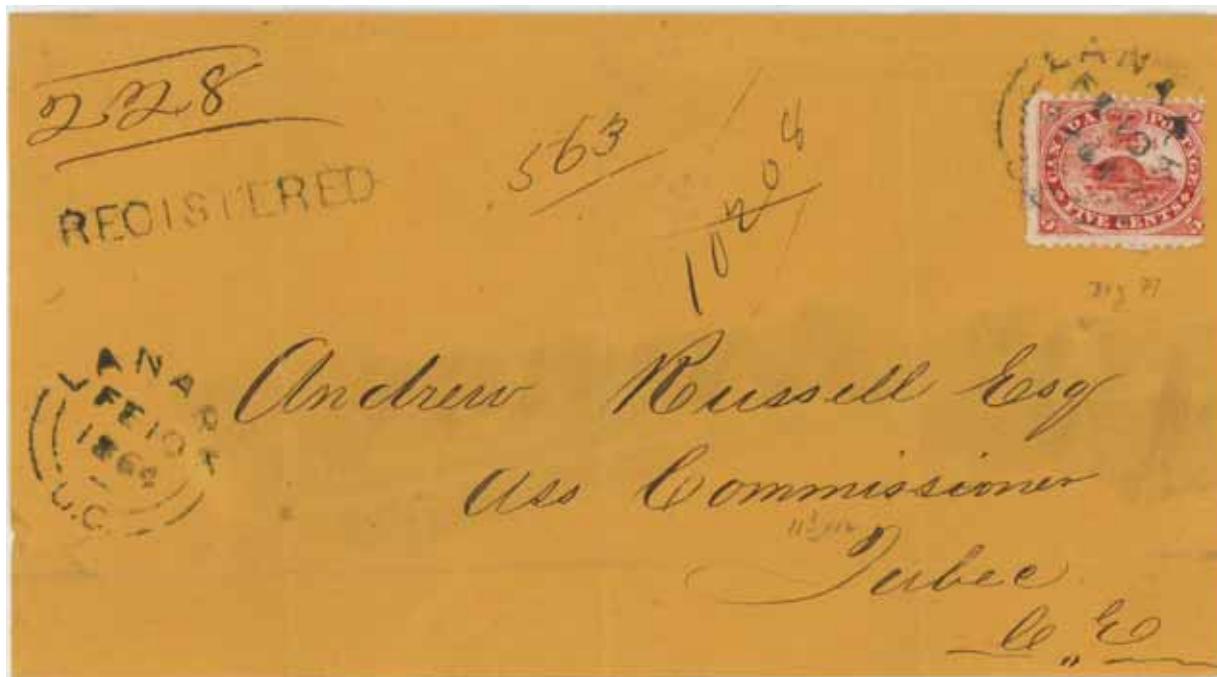 228
REGISTERED
563
10204
LANARK
CANADA POSTAGE
FIVE CENTS
5 5
5 5
LANARK
FE 10
186
U.C.
Andrew Russell Esq
Ass Commissioner
Qubec
C,,E